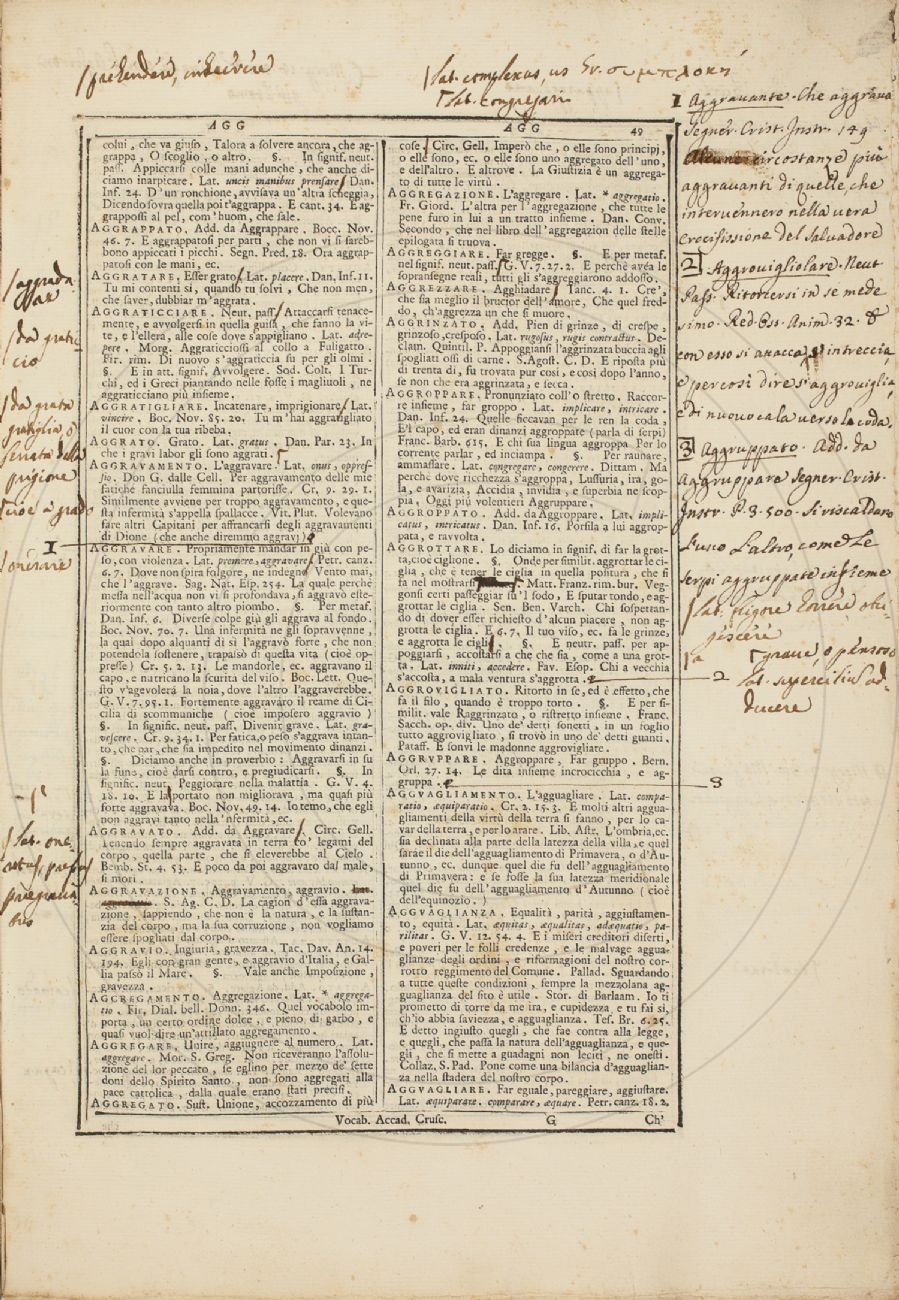 prehendere, inherere
Lat. complexus, us Gr. συμπλοκή
Lat. congregari
AGG
AGG 49
colui, che va giuso, Talora a solvere ancora, che ag-
grappa, O scoglio, o altro. §. In signif. neut.
pass. Appiccarsi colle mani adunche, che anche di-
ciamo inarpicare. Lat. uncis manibus prensare Dan.
Inf. 24. D'un ronchione, avvisava un'altra scheggia,
Dicendo sovra quella poi t'aggrappa. E cant. 34. E ag-
grappossi al pel, com'huom, che sale.
AGGRAPPATO. Add. da Aggrappare. Bocc. Nov.
46. 7. E aggrappatosi per parti, che non vi si sareb-
bono appiccati i picchi. Segn. Pred. 18. Ora aggrap-
patosi con le mani, ec.
AGGRATARE. Esser grato Lat. placere. Dan. Inf. 11.
Tu mi contenti sì, quando tu solvi, Che non men,
che saver, dubbiar m'aggrata.
AGGRATICCIARE. Neut. pass. Attaccarsi tenace-
mente, e avvolgersi in quella guisa, che fanno la vi-
te, e l'ellera, alle cose dove s'appigliano. Lat. adre-
pere. Morg. Aggraticciossi al collo a Fuligatto.
Fir. rim. Di nuovo s'aggraticcia su per gli olmi.
§. E in att. signif. Avvolgere. Sod. Colt. I Tur-
chi, ed i Greci piantando nelle fosse i magliuoli, ne
aggraticciano più insieme.
AGGRATIGLIARE. Incatenare, imprigionare Lat.
vincire. Boc. Nov. 85. 20. Tu m'hai aggratigliato
il cuor con la tua ribeba.
AGGRATO. Grato. Lat. gratus. Dan. Par. 23. In
che i gravi labor gli sono aggrati.
AGGRAVAMENTO. L'aggravare. Lat. onus, oppres-
sio. Don G. dalle Cell. Per aggravamento delle mie
fatiche fanciulla femmina partorisse. Cr. 9. 29. 1.
Similmente avviene per troppo aggravamento, e que-
sta infermità s'appella spallacce. Vit. Plut. Volevano
fare altri Capitani per affrancarsi degli aggravamenti
di Dione (che anche diremmo aggravj)
AGGRAVARE. Propriamente mandar in giù con pe-
so, con violenza. Lat. premere, aggravare Petr. canz.
6. 7. Dove non spira folgore, ne indegno Vento mai,
che l'aggrave. Sag. Nat. Esp. 254. La quale perchè
messa nell'acqua non vi si profondava, si aggravò este-
riormente con tanto altro piombo. §. Per metaf.
Dan. Inf. 6. Diverse colpe giù gli aggrava al fondo.
Boc. Nov. 70. 7. Una infermità ne gli sopravvenne,
la qual dopo alquanti dì sì l'aggravò forte, che non
potendola sostenere, trapassò di questa vita (cioè op-
presse) Cr. 5. 2. 13. Le mandorle, ec. aggravano il
capo, e nutricano la scurità del viso. Boc. Lett. Que-
sto v'agevolerà la noia, dove l'altro l'aggraverebbe.
G. V. 7. 95. 1. Fortemente aggravaro il reame di Ci-
cilia di scommuniche (cioè imposero aggravio)
§. In signific. neut. pass. Divenir grave. Lat. gra-
vescere. Cr. 9. 34. 1. Per fatica, o peso s'aggrava intan-
to, che par, che sia impedito nel movimento dinanzi.
§. Diciamo anche in proverbio: Aggravarsi in su
la fune, cioè darsi contro, e pregiudicarsi. §. In
signific. neut. Peggiorare nella malattia. G. V. 4.
18. 10. E la portato non migliorava, ma quasi più
forte aggravava. Boc. Nov. 49. 14. Io temo, che egli
non aggravi tanto nella 'nfermità, ec.
AGGRAVATO. Add. da Aggravare. Circ. Gell.
Tenendo sempre aggravata in terra co' legami del
corpo, quella parte, che si eleverebbe al Cielo.
Bemb. St. 4. 53. E poco da poi aggravato dal male,
si morì.
AGGRAVAZIONE. Aggravamento, aggravio.
S. Ag. C. D. La cagion d'essa aggrava-
zione, sappiendo, che non è la natura, e la sustan-
zia del corpo, ma la sua corruzione, non vogliamo
essere spogliati dal corpo.
AGGRAVIO. Ingiuria, gravezza. Tac. Dav. An. 14.
194. Egli con gran gente, e aggravio d'Italia, e Gal-
lia passò il Mare. §. Vale anche Imposizione,
gravezza.
AGGREGAMENTO. Aggregazione. Lat. * aggrega-
tio. Fir. Dial. bell. Donn. 346. Quel vocabolo im-
porta, un certo ordine dolce, e pieno di garbo, e
quasi vuol dire un'attillato aggregamento.
AGGREGARE. Unire, aggiugnere al numero. Lat.
aggregare. Mor. S. Greg. Non riceveranno l'assolu-
zione del lor peccato, se eglino per mezzo de' sette
doni dello Spirito Santo, non sono aggregati alla
pace cattolica, dalla quale erano stati precisi.
AGGREGATO. Sust. Unione, accozzamento di più
cose. Circ. Gell. Imperò che, o elle sono principj,
o elle sono, ec. o elle sono uno aggregato dell'uno,
e dell'altro. E altrove. La Giustizia è un aggrega-
to di tutte le virtù.
AGGREGAZIONE. L'aggregare. Lat. * aggregatio.
Fr. Giord. L'altra per l'aggregazione, che tutte le
pene furo in lui a un tratto insieme. Dan. Conv.
Secondo, che nel libro dell'aggregazion delle stelle
epilogata si truova.
AGGREGGIARE. Far gregge. §. E per metaf.
nel signif. neut. pass. G. V. 7. 27. 2. E perchè avea le
sopransegne reali, tutti gli s'aggreggiarono addosso.
AGGREZZARE. Agghiadare Tanc. 4. 1. Cre',
che sia meglio il brucior dell'amore, Che quel fred-
do, ch'aggrezza un che si muore.
AGGRINZATO. Add. Pien di grinze, di crespe,
grinzoso, cresposo. Lat. rugosus, rugis contractus. De-
clam. Quintil. P. Appoggiansi l'aggrinzata buccia agli
spogliati ossi di carne. S. Agost. C. D. E riposta più
di trenta dì, fu trovata pur così, e così dopo l'anno,
se non che era aggrinzata, e secca.
AGGROPPARE. Pronunziato coll'o stretto. Raccor-
re insieme, far groppo. Lat. implicare, intricare.
Dan. Inf. 24. Quelle ficcavan per le ren la coda,
E'l capo, ed eran dinanzi aggroppate (parla di serpi)
Franc. Barb. 615. E chi sua lingua aggroppa Per lo
corrente parlar, ed inciampa. §. Per raunare,
ammassare. Lat. congregare, congerere. Dittam. Ma
perchè dove ricchezza s'aggroppa, Lussuria, ira, go-
la, e avarizia, Accidia, invidia, e superbia ne scop-
pia. Oggi più volentieri Aggruppare.
AGGROPPATO. Add. da Aggroppare. Lat. impli-
catus, intricatus. Dan. Inf. 16. Porsila a lui aggrop-
pata, e ravvolta.
AGGROTTARE. Lo diciamo in signif. di far la grot-
ta, cioè ciglione. §. Onde per similit. aggrottar le ci-
glia, che è tener le ciglia in quella positura, che si
fa nel mostrarsi Matt. Franz. rim. bur. Veg-
gonsi certi passeggiar su'l sodo, E sputar tondo, e ag-
grottar le ciglia. Sen. Ben. Varch. Chi sospettan-
do di dover esser richiesto d'alcun piacere, non ag-
grotta le ciglia. E 6. 7. Il tuo viso, ec. fa le grinze,
e aggrotta le ciglia. §. E neutr. pass. per ap-
poggiarsi, accostarsi a che che sia, come a una grot-
ta. Lat. inniti, accedere. Fav. Esop. Chi a vecchia
s'accosta, a mala ventura s'aggrotta. 2
AGGROVIGLIATO. Ritorto in se, ed è effetto, che
fa il filo, quando è troppo torto. §. E per si-
milit. vale Raggrinzato, o ristretto insieme. Franc.
Sacch. op. div. Uno de' detti sonetti, in un foglio
tutto aggrovigliato, si trovò in uno de' detti guanti.
Pataff. E sonvi le madonne aggrovigliate.
AGGRVPPARE. Aggroppare, Far gruppo. Bern.
Orl. 27. 14. Le dita insieme incrocicchia, e ag-
gruppa. 3
AGGVAGLIAMENTO. L'agguagliare. Lat. compa-
ratio, æquiparatio. Cr. 2. 15. 3. E molti altri aggua-
gliamenti della virtù della terra si fanno, per lo ca-
var della terra, e per lo arare. Lib. Astr. L'ombria, ec.
sia declinata alla parte della latezza della villa, e quel
sarae il die dell'agguagliamento di Primavera, o d'Au-
tunno, ec. dunque quel die fu dell'agguagliamento
di Primavera: e se fosse la sua latezza meridionale
quel die fu dell'agguagliamento d'Autunno (cioè
dell'equinozio.)
AGGVAGLIANZA. Equalità, parità, aggiustamen-
to, equità. Lat. æquitas, æqualitas, adæquatio, pa-
rilitas. G. V. 12. 54. 4. E i miseri creditori diserti,
e poveri per le folli credenze, e le malvage aggua-
glianze degli ordini, e riformagioni del nostro cor-
rotto reggimento del Comune. Pallad. Sguardando
a tutte queste condizioni, sempre la mezzolana ag-
guaglianza del sito è utile. Stor. di Barlaam. Io ti
prometto di torre da me ira, e cupidezza, e tu fai sì,
ch'io abbia saviezza, e agguaglianza. Tes. Br. 6. 25.
E detto ingiusto quegli, che fae contra alla legge,
e quegli, che passa la natura dell'agguaglianza, e que-
gli, che si mette a guadagni non leciti, ne onesti.
Collaz. S. Pad. Pone come una bilancia d'agguaglian-
za nella stadera del nostro corpo.
AGGVAGLIARE. Far eguale, pareggiare, aggiustare.
Lat. æquiparare, comparare, æquare. Petr. canz. 18. 2.
Vocab. Accad. Crusc. G Ch'
da grati-
cio
da grata
graticiglia, o
serrata della
prigione
cioè a grado
1
onerare
Lat. one-
1 Aggravante. Che aggrava
Segner. Crist. Instr. 149
Alcune circostanze più
aggravanti di quelle, che
intervennero nella vera
Crocifissione del Salvadore
2 Aggrovigliolare. Neut
Pass. Ritorcersi in se mede
simo. Red. Oss. Anim. 32. E
con esso si attacca, si intreccia
e per così dire s'aggroviglia
e di nuovo cala verso la coda.
3 Aggruppato. Add. da
Aggruppare Segner. Crist.
Instr. P. 3. 500. Si riscaldaro
l'uno l'altro, come le
serpi aggruppate insieme
Lat. frigore torrere, obri-
gescere
grave, o penoso
Lat. supercilius ad-
ducere